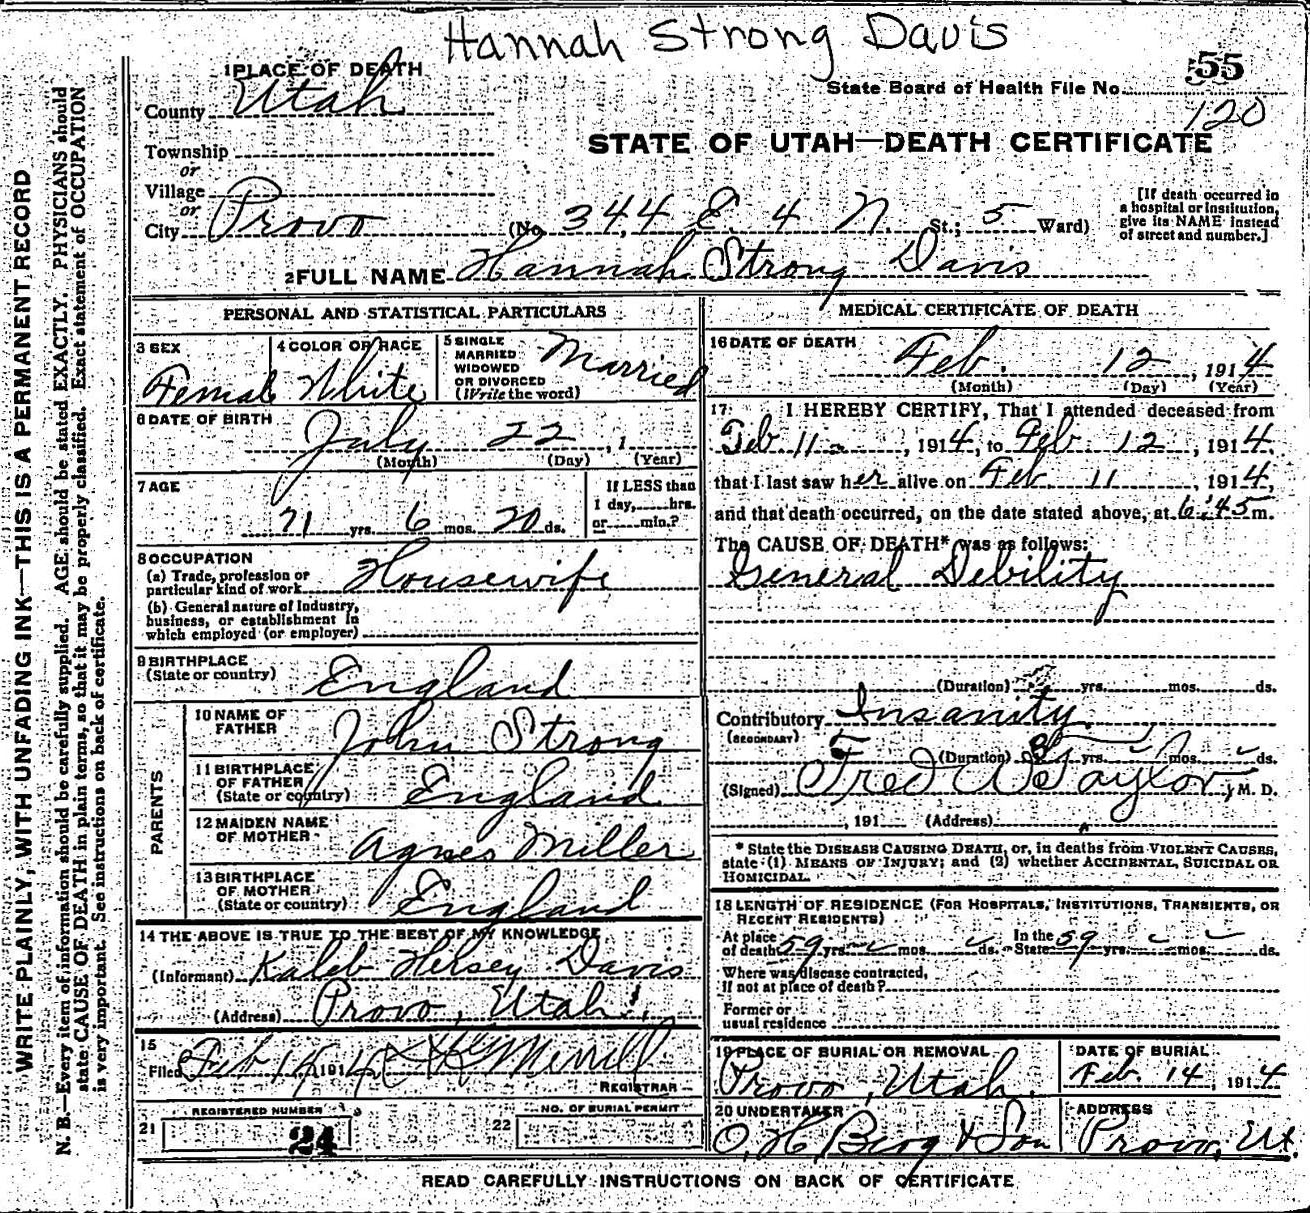 Hannah Strong Davis
1 PLACE OF DEATH
State Board of Health File No. 55
120
County Utah
STATE OF UTAH—DEATH CERTIFICATE
Township
or
Village
or
City Provo (No. 344 E. 4 N. St.; 5 Ward)
[If death occurred in
a hospital or institution,
give its NAME instead
of street and number.]
2 FULL NAME Hannah Strong Davis
PERSONAL AND STATISTICAL PARTICULARS
3 SEX Female
4 COLOR OR RACE White
5 SINGLE
MARRIED
WIDOWED
OR DIVORCED
(Write the word)
Married
6 DATE OF BIRTH
July 22, 1
(Month) (Day) (Year)
7 AGE
71 yrs. 6 mos. 20 ds.
If LESS than
1 day,......hrs.
or......min.?
8 OCCUPATION
(a) Trade, profession or
particular kind of work Housewife
(b) General nature of Industry,
business, or establishment in
which employed (or employer)
9 BIRTHPLACE
(State or country) England
PARENTS
10 NAME OF
FATHER John Strong
11 BIRTHPLACE
OF FATHER
(State or country) England
12 MAIDEN NAME
OF MOTHER Agnes Miller
13 BIRTHPLACE
OF MOTHER
(State or country) England
14 THE ABOVE IS TRUE TO THE BEST OF MY KNOWLEDGE
(Informant) Kaleb Helsey Davis
(Address) Provo, Utah.
15
Filed Feb 191 Merrill
REGISTRAR
REGISTERED NUMBER
21 24
NO. OF BURIAL PERMIT
22
MEDICAL CERTIFICATE OF DEATH
16 DATE OF DEATH
Feb. 12, 1914
(Month) (Day) (Year)
17 I HEREBY CERTIFY, That I attended deceased from
Feb 11, 1914, to Feb 12, 1914,
that I last saw her alive on Feb 11, 1914,
and that death occurred, on the date stated above, at 6:45 m.
The CAUSE OF DEATH* was as follows:
General Debility
(Duration) yrs. mos. ds.
Contributory Insanity
(SECONDARY)
(Duration) yrs. mos. ds.
(Signed) Fred W Taylor, M. D.
, 191 (Address)
* State the DISEASE CAUSING DEATH, or, in deaths from VIOLENT CAUSES,
state (1) MEANS OF INJURY; and (2) whether ACCIDENTAL, SUICIDAL OR
HOMICIDAL.
18 LENGTH OF RESIDENCE (FOR HOSPITALS, INSTITUTIONS, TRANSIENTS, OR
RECENT RESIDENTS)
At place
of death 59 yrs. mos. ds. In the
State 59 yrs. mos. ds.
Where was disease contracted,
If not at place of death?
Former or
usual residence
19 PLACE OF BURIAL OR REMOVAL
Provo, Utah.
DATE OF BURIAL
Feb. 14, 1914
20 UNDERTAKER
O. H. Berg & Son
ADDRESS
Provo, Ut.
READ CAREFULLY INSTRUCTIONS ON BACK OF CERTIFICATE
WRITE PLAINLY, WITH UNFADING INK—THIS IS A PERMANENT RECORD
N. B.—Every item of information should be carefully supplied. AGE should be stated EXACTLY. PHYSICIANS should
state CAUSE OF DEATH in plain terms, so that it may be properly classified. Exact statement of OCCUPATION
is very important. See instructions on back of certificate.